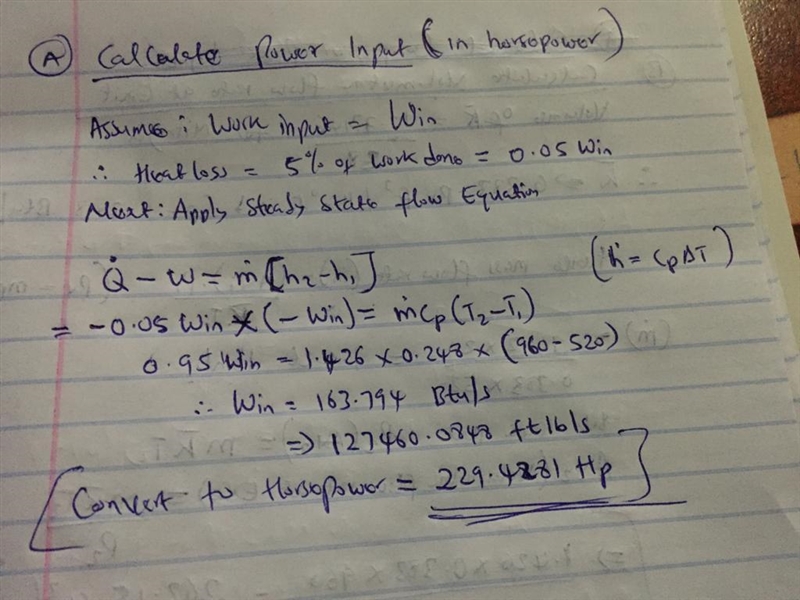 (A) Calculate Power Input (in horsepower)
Assume: Work input = Win
∴ Heat loss = 5% of work done = 0.05 Win
Next: Apply Steady State flow Equation
Q̇ - W = ṁ[h₂-h₁] (h = CpΔT)
= -0.05 Win - (-Win) = ṁCp(T₂-T₁)
0.95 Win = 1.426 x 0.248 x (960-520)
∴ Win = 163.794 Btu/s
=> 127460.0848 ft lb/s
Convert to Horsepower = 229.4281 Hp